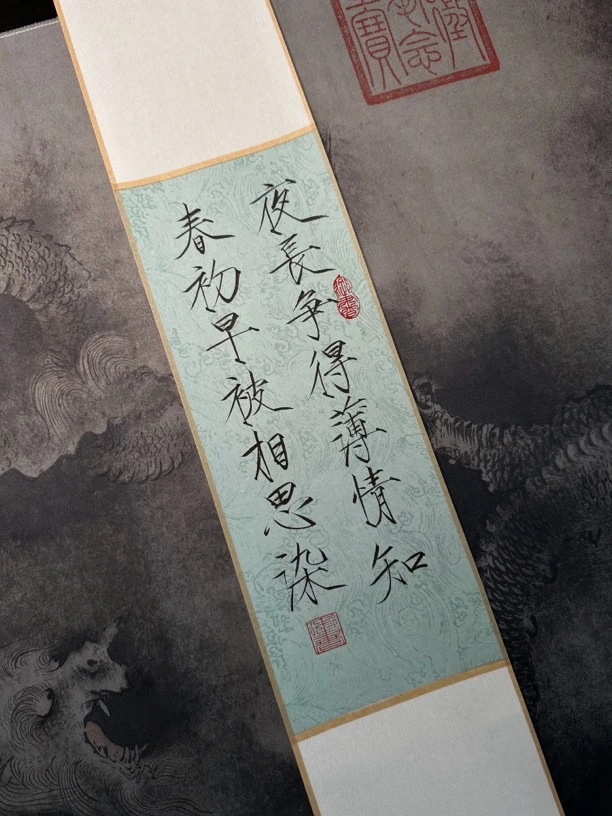 夜長争得薄情知
春初早被相思染